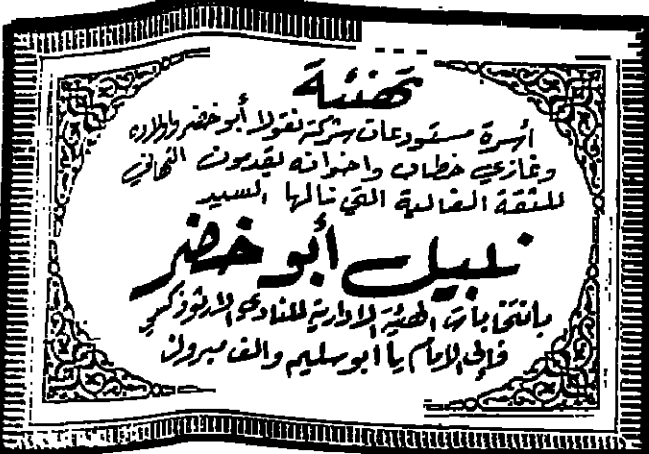 تهنئة
أسرة مستودعات شركة نقولا أبو خضر وأولاده
وغازي خطاب واخوانه يقدمون التهاني
للثقة الغالية التي نالها السيد
نبيل أبو خضر
بانتخابات الهيئة الادارية للنادي الارثوذكسي
فإلى الامام يا أبو سليم والف مبروك